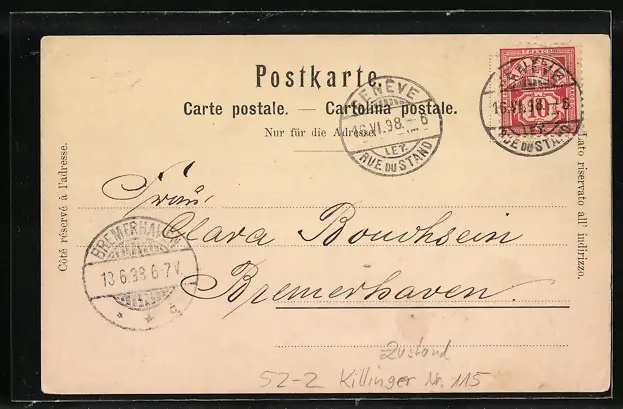 Postkarte.
Carte postale. — Cartolina postale.
Nur für die Adresse.
GENÈVE
16.VI.98.–6
LET.
RUE DU STAND
FRANCO
HELVETIA
10
GENÈVE
16.VI.98.–6
LET.
RUE DU STAND
Côté réservé à l'adresse.
Lato riservato all' indirizzo.
Frau
Clara
Bremerhaven.
BREMERHAVEN
18.6.98.6-7V.
Zustand
52-2 Killinger Nr. 115